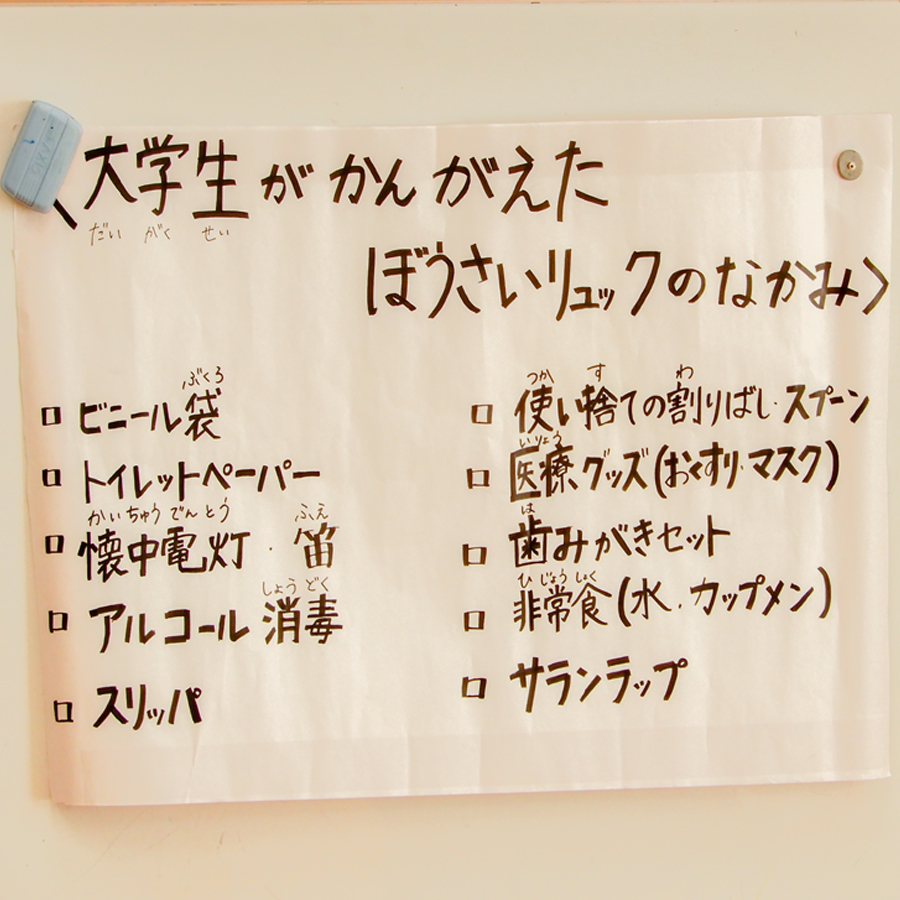 〈大学生がかんがえた
だい がく せい
ぼうさいリュックのなかみ〉
ぶくろ
□ ビニール袋
□ トイレットペーパー
かいちゅうでんとう ふえ
□ 懐中電灯・笛
しょうどく
□ アルコール消毒
□ スリッパ
つか す わ
□ 使い捨ての割りばし・スプーン
いりょう
□ 医療グッズ(おくすり・マスク)
は
□ 歯みがきセット
ひじょうしょく
□ 非常食(水、カップメン)
□ サランラップ